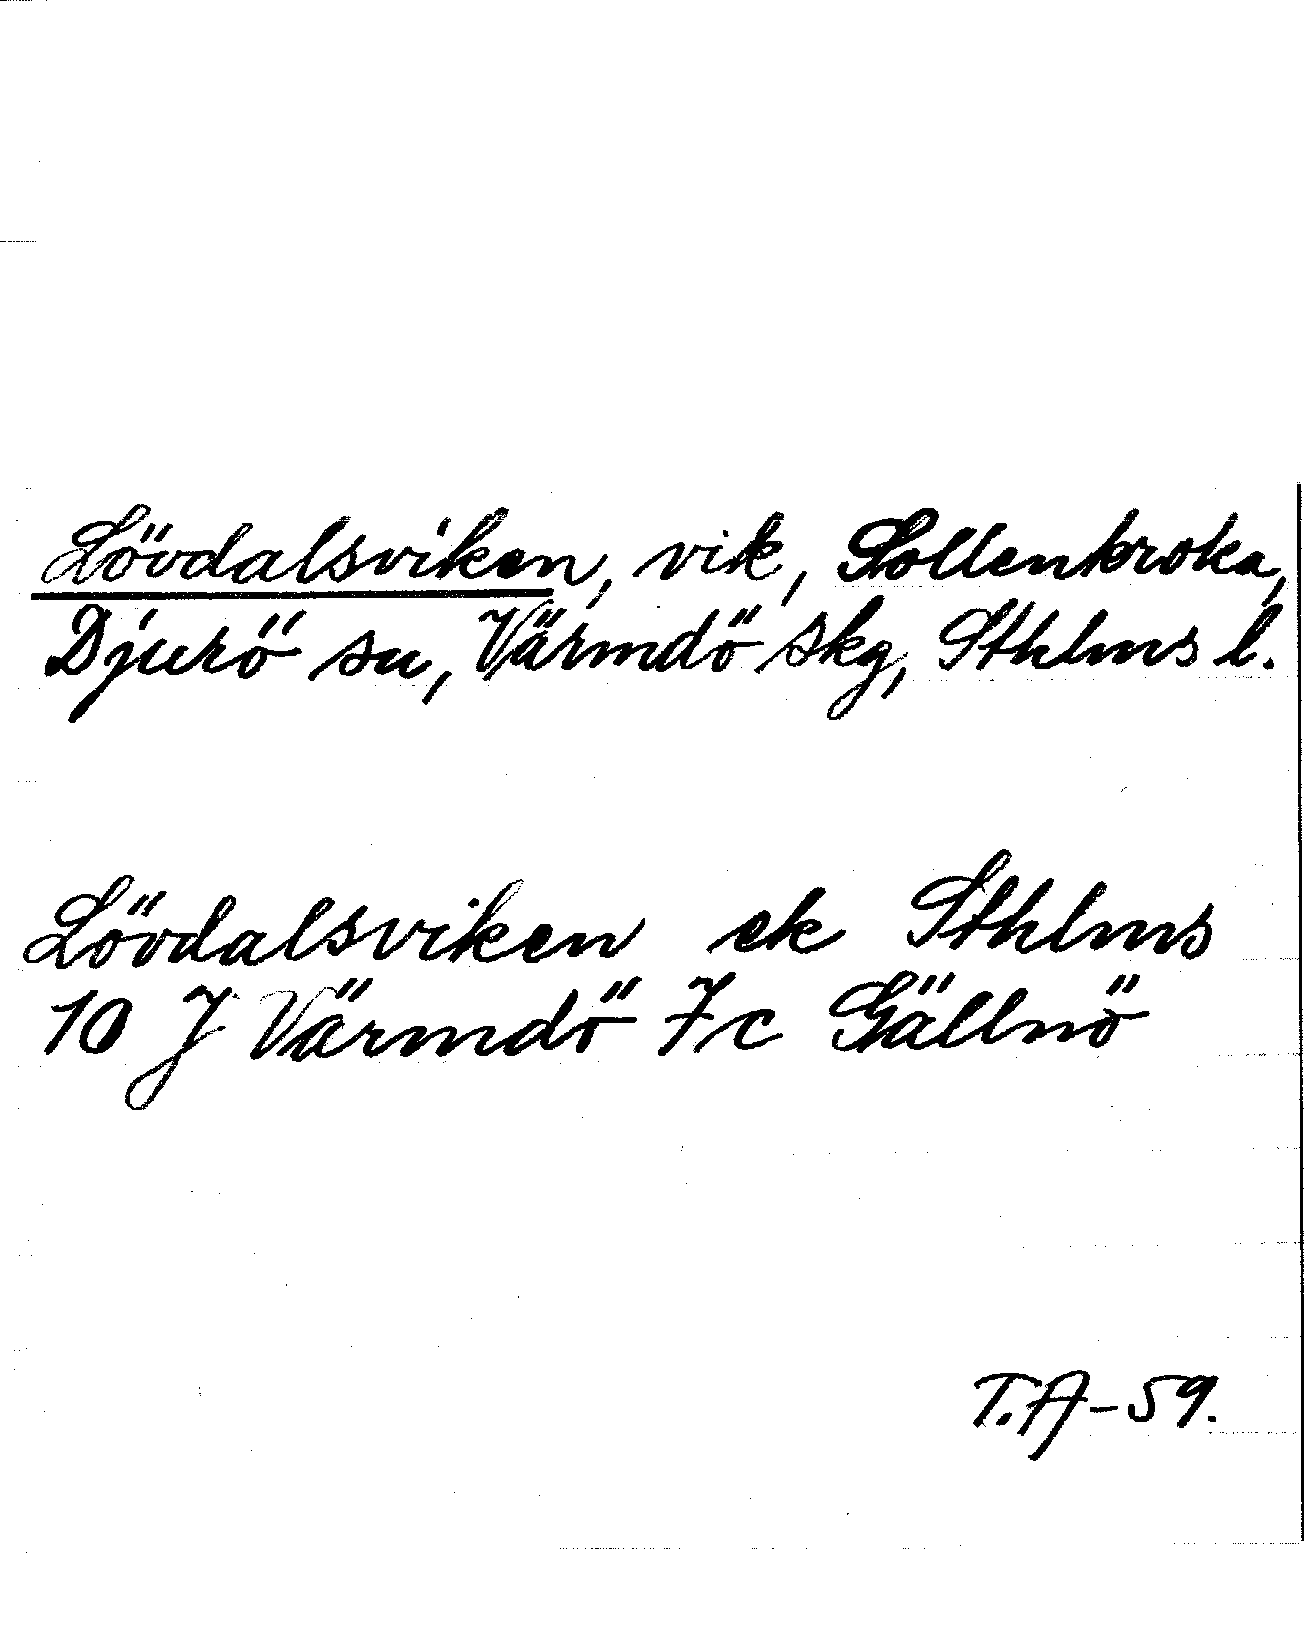 Lövdalsviken, vik, Sollenkroka,
Djurö sn, Värmdö skg, Sthlms l.
Lövdalsviken ek Sthlms
10 J Värmdö 7c Gällnö
T.A-59.